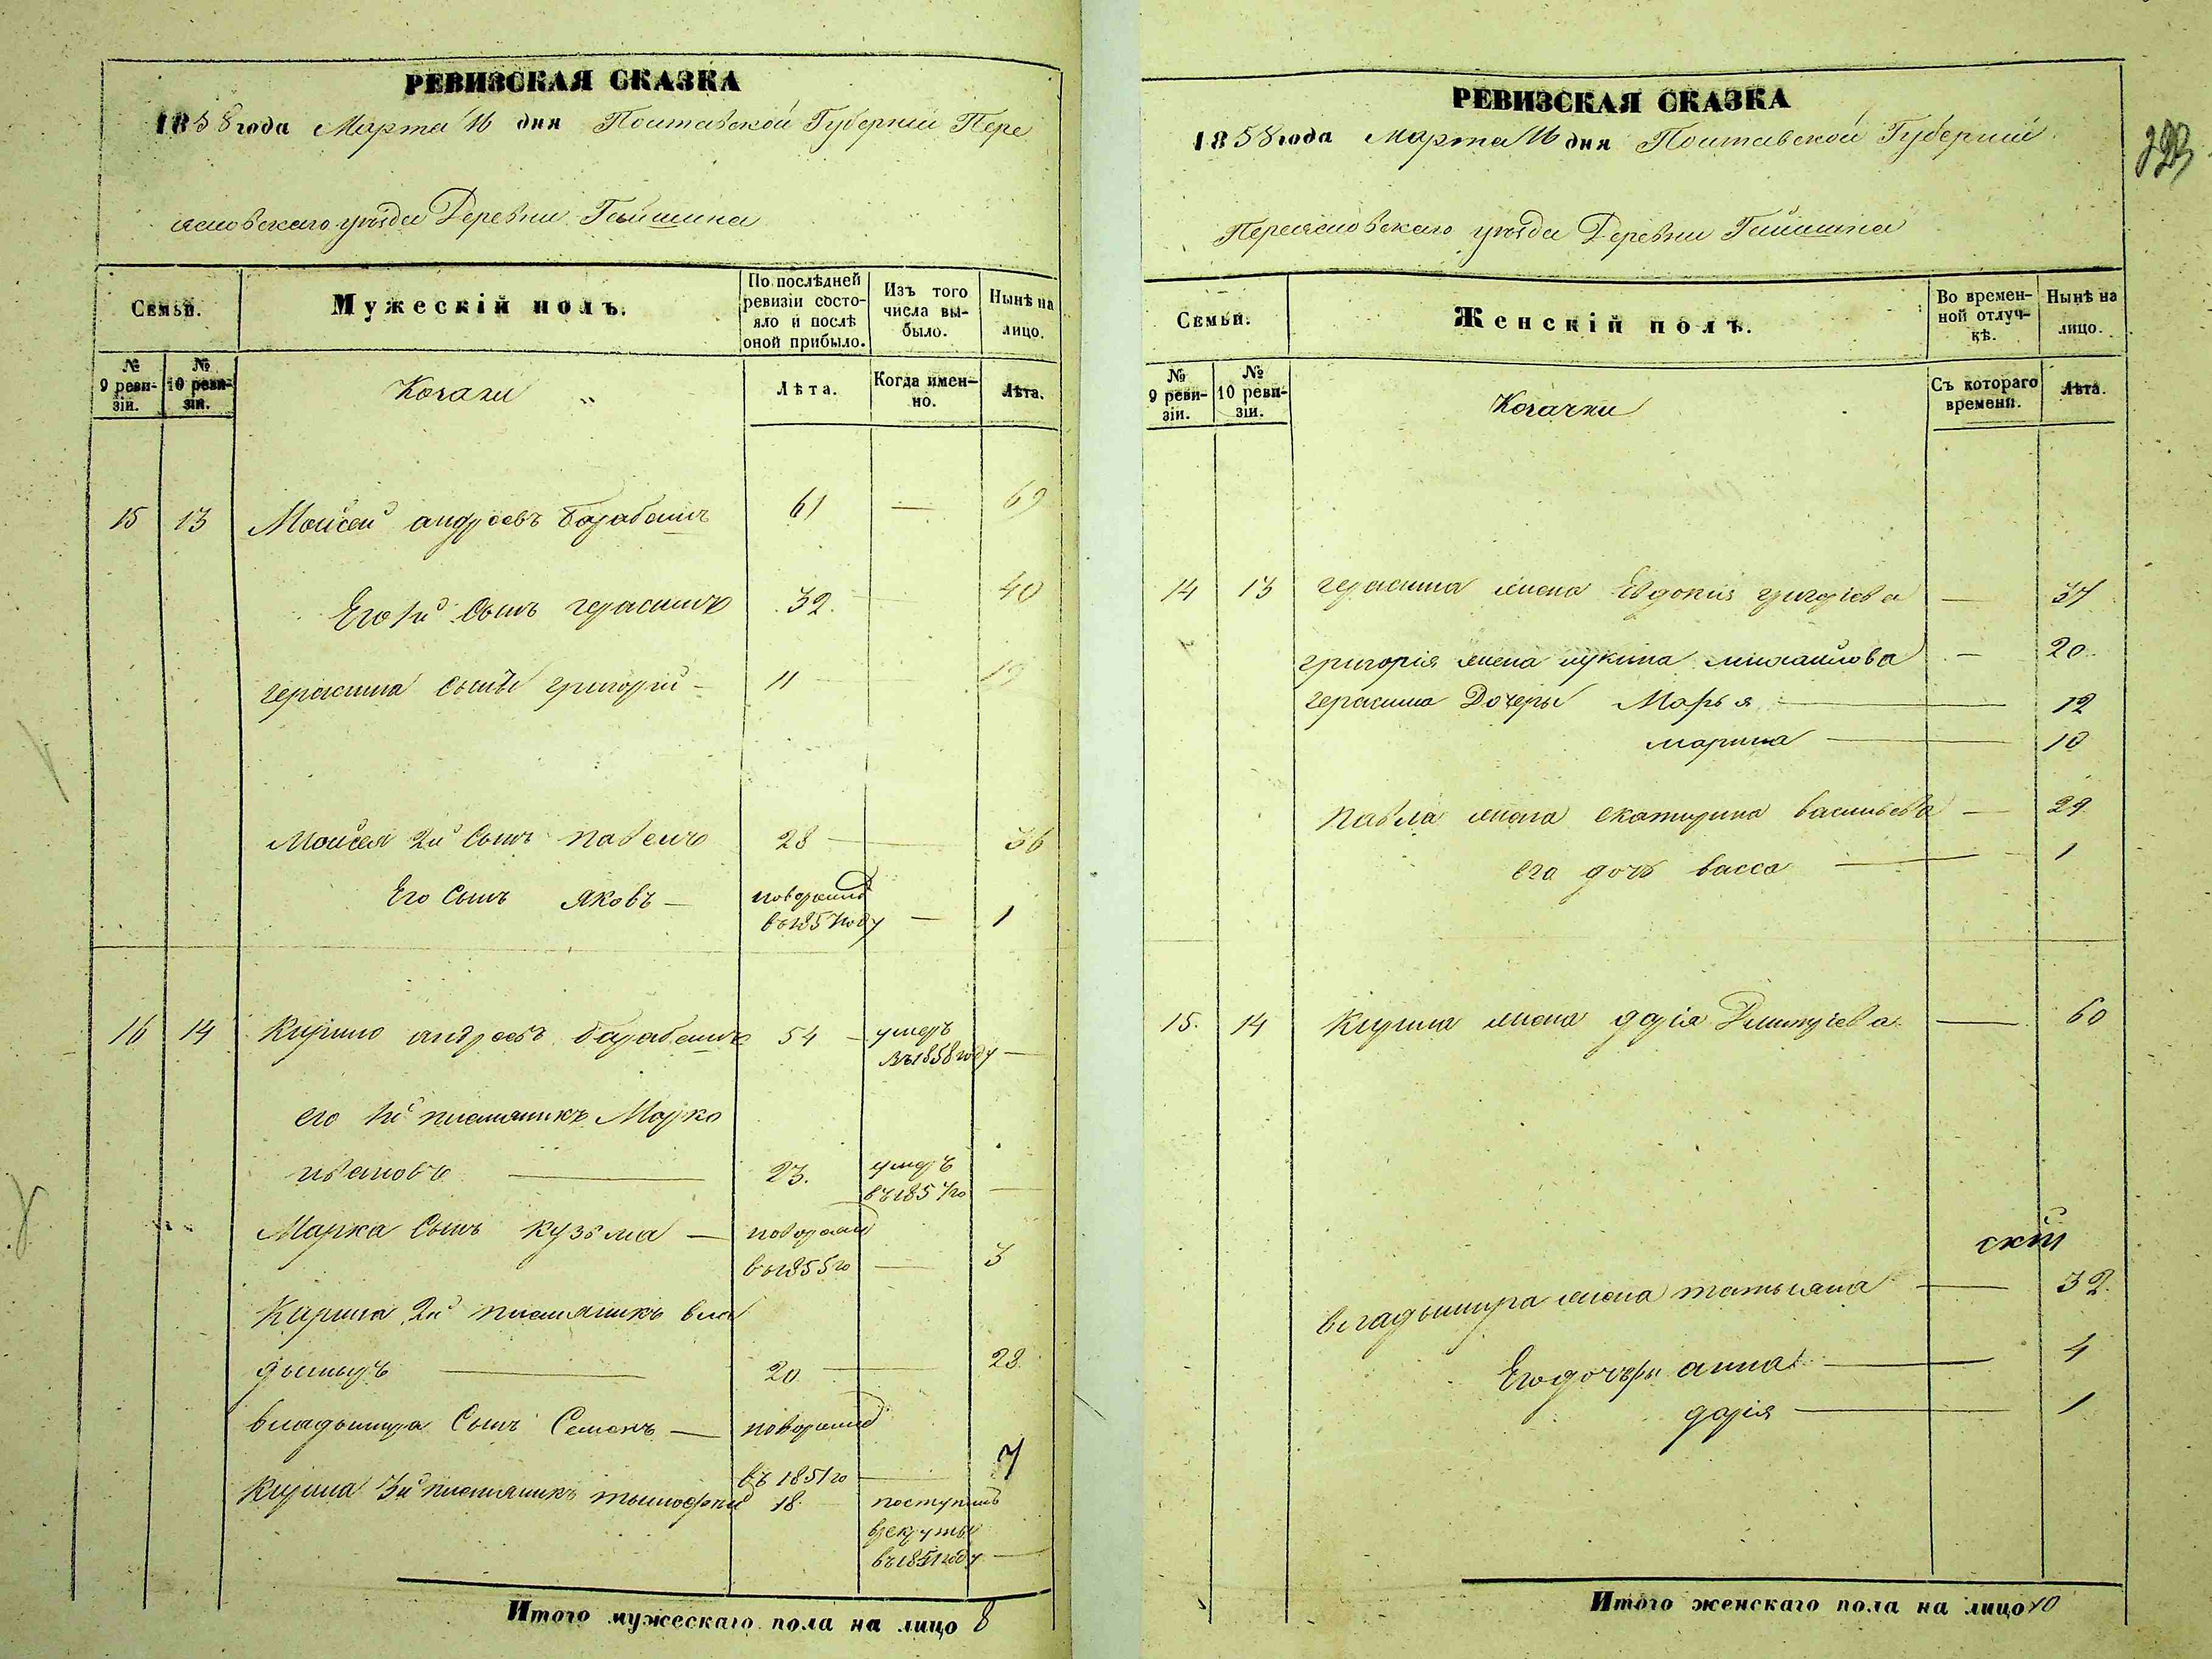 РЕВИЗСКАЯ СКАЗКА
1858 года Марта 16 дня Полтавской Губернии Пере
яславского уезда Деревни Гайшина
Семьи.
Мужескій полъ.
По послѣдней ревизіи состояло и послѣ оной прибыло.
Изъ того числа выбыло.
Нынѣ на лицо.
№ 9 ревизіи.
№ 10 ревизіи.
Козаки
Лѣта.
Когда именно.
Лѣта.
15 13 Моисей андреевъ барабашъ 61 — 69
Его 1й Сынъ герасимъ 32. 40
герасима Сынъ григорій – 11 19
Моисея 2й Сынъ павелъ 28 — 36
Его Сынъ яковъ —
въ 1857 году — 1
16 14 Кирило андреевъ барабашъ 54 – умеръ
въ 1858 году —
его 1й племяникъ Марко
ивановъ — 23. умеръ
въ 1857 го —
Марка Сынъ кузьма —
въ 1855 го — 3
Кирила 2й племяникъ вла
дымиръ — 20 — 28.
владымира Сынъ Семенъ —
въ 1851 го — 7
Кирила 3й племяникъ тымофей 18. поступилъ
в рекруты
въ 1851 году —
Итого мужескаго пола на лицо 8
РЕВИЗСКАЯ СКАЗКА
1858 года Марта 16 дня Полтавской Губерніи
Переяславскаго уезда Деревни Гайшина
Семьи.
Женскій полъ.
Во временной отлучкѣ.
Нынѣ на лицо.
№ 9 ревизіи.
№ 10 ревизіи.
Козачки
Съ котораго времени.
Лѣта.
14 13 герасима жена Евдокия григоріева — 37
григорія жена михайлова — 20.
герасима Дочеры Марья — 12
марина — 10
павла жена екатирина васильева — 29
его дочь васса — 1
15. 14 Кирила жена дарія Дмитріева — 60
ский
владымира жена татьяна — 32.
Его дочеры анна — 4
дарія — 1
Итого женскаго пола на лицо 10